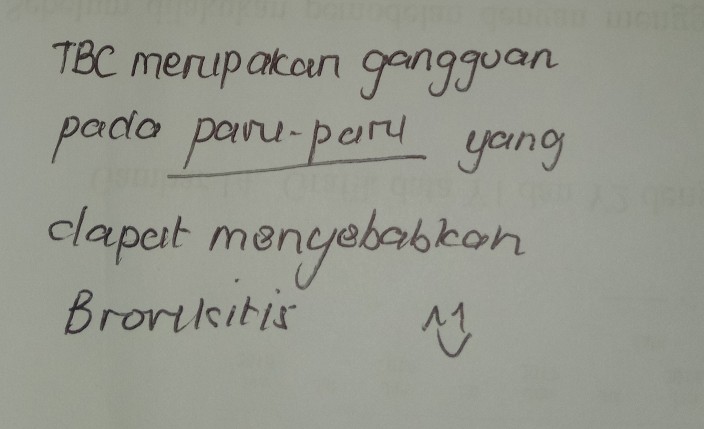 TBC merupakan gangguan
pada paru-paru yang
dapat menyebabkan
Bronkitis